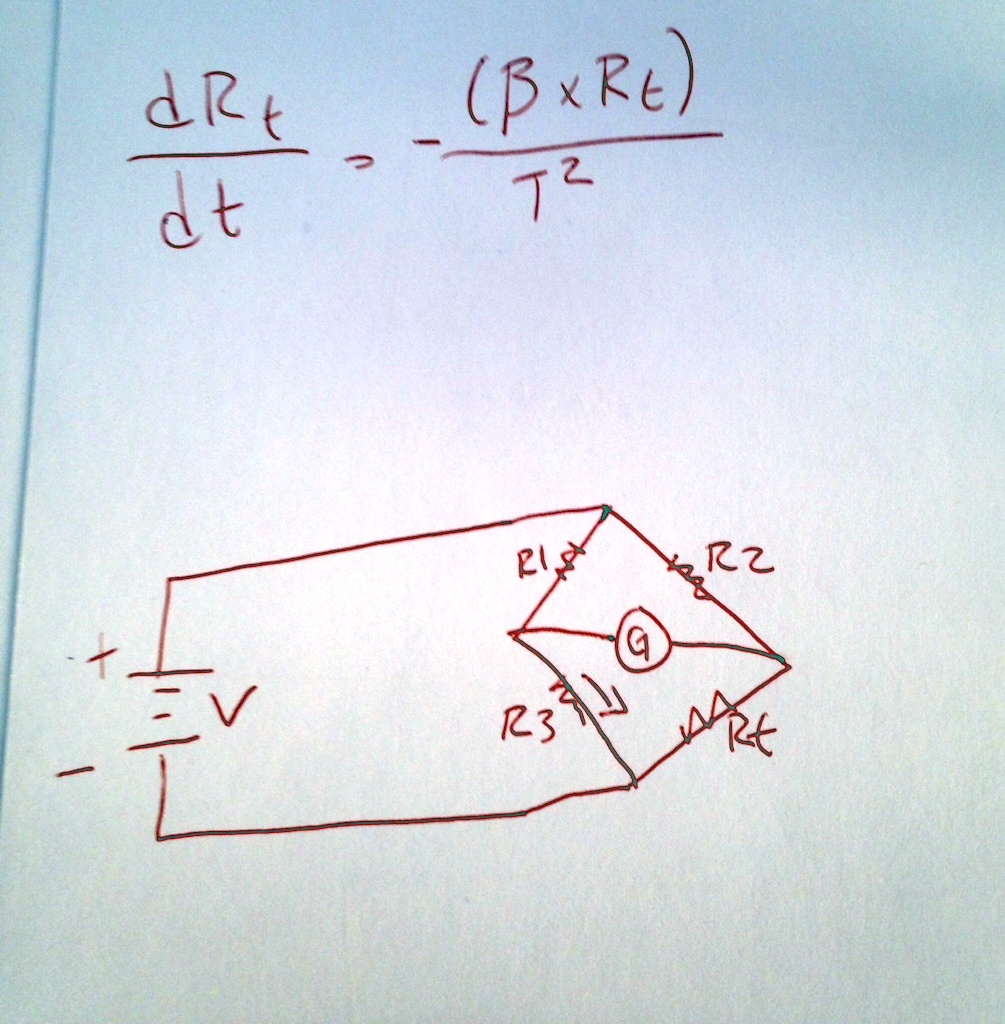 dRt/dt = -(β×Rt)/T²
R1 R2
+ G
V
R3 Rt
-